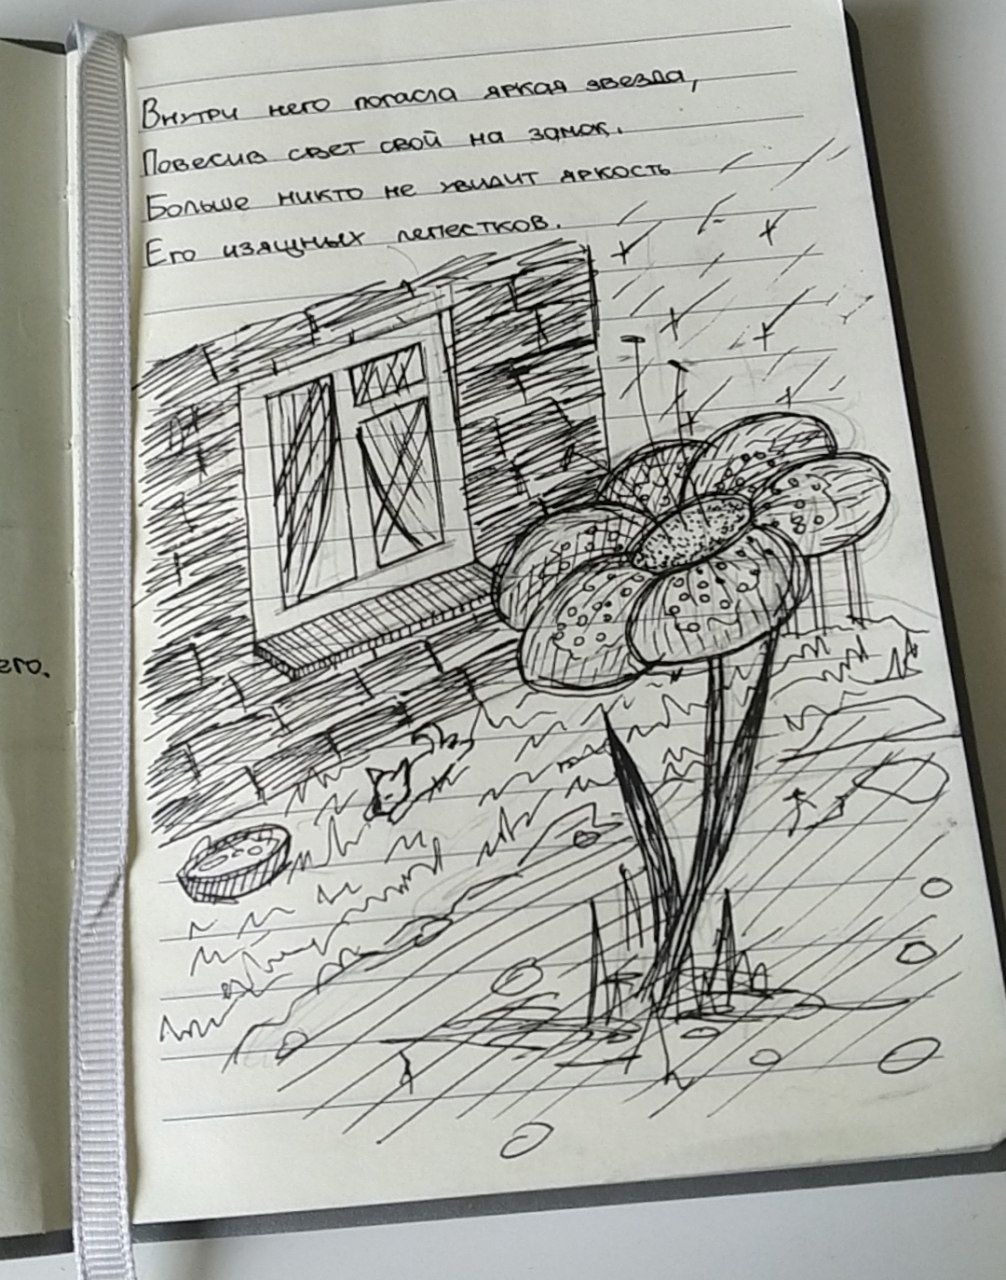 Внутри него погасла яркая звезда,
Повесив свет свой на замок.
Больше никто не увидит яркость
Его изящных лепестков.
его.